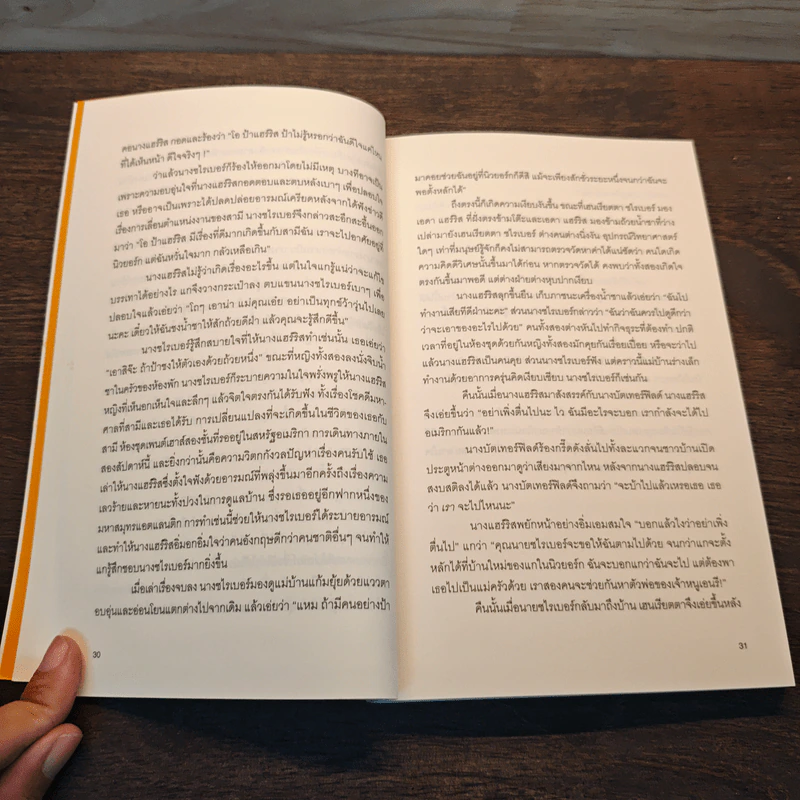 คอนางแฮร์ริส กอดและร้องว่า "โอ ป้าแฮร์ริส ป้าไม่รู้หรอกว่าฉันดีใจแค่ไหน
ที่ได้เห็นหน้า ดีใจจริงๆ !"
ว่าแล้วนางชไรเบอร์ก็ร้องไห้ออกมาโดยไม่มีเหตุ บางทีอาจเป็น
เพราะความอบอุ่นใจที่นางแฮร์ริสกอดตอบและตบหลังเบาๆ เพื่อปลอบใจ
เธอ หรืออาจเป็นเพราะได้ปลดปล่อยอารมณ์เครียดหลังจากได้ฟังข่าวดี
เรื่องการเลื่อนตำแหน่งงานของสามี นางชไรเบอร์จึงกล่าวสะอึกสะอื้นออก
มาว่า "โอ ป้าแฮร์ริส มีเรื่องที่ดีมากเกิดขึ้นกับสามีฉัน เราจะไปอาศัยอยู่ที่
นิวยอร์ก แต่ฉันหวั่นใจมาก กลัวเหลือเกิน"
นางแฮร์ริสไม่รู้ว่าเกิดเรื่องอะไรขึ้น แต่ในใจแกรู้แน่ว่าจะแก้ไข
บรรเทาได้อย่างไร แกจึงวางกระเป๋าลง ตบแขนนางชไรเบอร์เบาๆ เพื่อ
ปลอบใจแล้วเอ่ยว่า "โถๆ เอาน่า แม่คุณเอ๋ย อย่าเป็นทุกข์ว้าวุ่นไปเลย
นะคะ เดี๋ยวให้ฉันชงน้ำชาให้สักถ้วยดีฝ่า แล้วคุณจะรู้สึกดีขึ้น"
นางชไรเบอร์รู้สึกสบายใจที่ให้นางแฮร์ริสทำเช่นนั้น เธอเอ่ยว่า
"เอาสิจ๊ะ ถ้าป้าชงให้ตัวเองด้วยถ้วยหนึ่ง" ขณะที่หญิงทั้งสองลงนั่งจิบน้ำ
ชาในครัวของห้องพัก นางชไรเบอร์ก็ระบายความในใจพรั่งพรูให้นางแฮร์ริส
หญิงที่เห็นอกเห็นใจและลึกๆ แล้วจิตใจตรงกันได้รับฟัง ทั้งเรื่องโชคดีมหา-
ศาลที่สามีและเธอได้รับ การเปลี่ยนแปลงที่จะเกิดขึ้นในชีวิตของเธอกับ
สามี ห้องชุดเพนต์เฮาส์สองชั้นที่รออยู่ในสหรัฐอเมริกา การเดินทางภายใน
สองสัปดาห์นี้ และยิ่งกว่านั้นคือความวิตกกังวลปัญหาเรื่องคนรับใช้ เธอ
เล่าให้นางแฮร์ริสซึ่งตั้งใจฟังด้วยอารมณ์ที่พลุ่งขึ้นมาอีกครั้งถึงเรื่องความ
เลวร้ายและหายนะทั้งปวงในการดูแลบ้าน ซึ่งรอเธออยู่อีกฟากหนึ่งของ
มหาสมุทรแอตแลนติก การทำเช่นนี้ช่วยให้นางชไรเบอร์ได้ระบายอารมณ์
และทำให้นางแฮร์ริสอิ่มอกอิ่มใจว่าคนอังกฤษดีกว่าคนชาติอื่นๆ จนทำให้
แกรู้สึกชอบนางชไรเบอร์มากยิ่งขึ้น
เมื่อเล่าเรื่องจบลง นางชไรเบอร์มองดูแม่บ้านแก้มยุ้ยด้วยแววตา
อบอุ่นและอ่อนโยนแตกต่างไปจากเดิม แล้วเอ่ยว่า "แหม ถ้ามีคนอย่างป้า
30
มาคอยช่วยฉันอยู่ที่นิวยอร์กก็ดีสิ แม้จะเพียงสักชั่วระยะหนึ่งจนกว่าฉันจะ
พอตั้งหลักได้"
ถึงตรงนี้ก็เกิดความเงียบงันขึ้น ขณะที่เฮนเรียตตา ชไรเบอร์ มอง
เอดา แฮร์ริส ที่ฝั่งตรงข้ามโต๊ะและเอดา แฮร์ริส มองข้ามถ้วยน้ำชาที่ว่าง
เปล่ามายังเฮนเรียตตา ชไรเบอร์ ต่างคนต่างนิ่งงัน อุปกรณ์วิทยาศาสตร์
ใดๆ เท่าที่มนุษย์รู้จักก็คงไม่สามารถตรวจวัดหาค่าได้แน่ชัดว่า คนใดเกิด
ความคิดดีวิเศษนั้นขึ้นมาได้ก่อน หากตรวจวัดได้ คงพบว่าทั้งสองเกิดใจ
ตรงกันขึ้นมาพอดี แต่ต่างฝ่ายต่างหุบปากเงียบ
นางแฮร์ริสลุกขึ้นยืน เก็บภาชนะเครื่องน้ำชาแล้วเอ่ยว่า "ฉันไป
ทำงานเสียทีดีฝ่านะคะ" ส่วนนางชไรเบอร์กล่าวว่า "ฉันว่าฉันควรไปดูดีกว่า
ว่าจะเอาของอะไรไปด้วย" คนทั้งสองต่างหันไปทำกิจธุระที่ต้องทำ ปกติ
เวลาที่อยู่ในห้องชุดด้วยกันหญิงทั้งสองมักคุยกันเรื่อยเปื่อย หรือจะว่าไป
แล้วนางแฮร์ริสเป็นคนคุย ส่วนนางชไรเบอร์ฟัง แต่คราวนี้แม่บ้านร่างเล็ก
ทำงานด้วยอาการครุ่นคิดเงียบเชียบ นางชไรเบอร์ก็เช่นกัน
คืนนั้นเมื่อนางแฮร์ริสมาสังสรรค์กับนางบัตเทอร์ฟิลด์ นางแฮร์ริส
จึงเอ่ยขึ้นว่า "อย่าเพิ่งตื่นไปนะ ไว ฉันมีอะไรจะบอก เรากำลังจะได้ไป
อเมริกากันแล้ว!"
นางบัตเทอร์ฟิลด์ร้องกรี๊ดดังลั่นไปทั้งละแวกจนชาวบ้านเปิด
ประตูหน้าต่างออกมาดูว่าเสียงมาจากไหน หลังจากนางแฮร์ริสปลอบจน
สงบสติลงได้แล้ว นางบัตเทอร์ฟิลด์จึงถามว่า "จะบ้าไปแล้วเหรอเธอ เธอ
ว่า เรา จะไปไหนนะ"
นางแฮร์ริสพยักหน้าอย่างอิ่มเอมสมใจ "บอกแล้วไงว่าอย่าเพิ่ง
ตื่นไป" แกว่า "คุณนายชไรเบอร์จะขอให้ฉันตามไปด้วย จนกว่าแกจะตั้ง
หลักได้ที่บ้านใหม่ของแกในนิวยอร์ก ฉันจะบอกแกว่าฉันจะไป แต่ต้องพา
เธอไปเป็นแม่ครัวด้วย เราสองคนจะช่วยกันหาตัวพ่อของเจ้าหนูเฮนรี!"
คืนนั้นเมื่อนายชไรเบอร์กลับมาถึงบ้าน เฮนเรียตตาจึงเอ่ยขึ้นหลัง
31